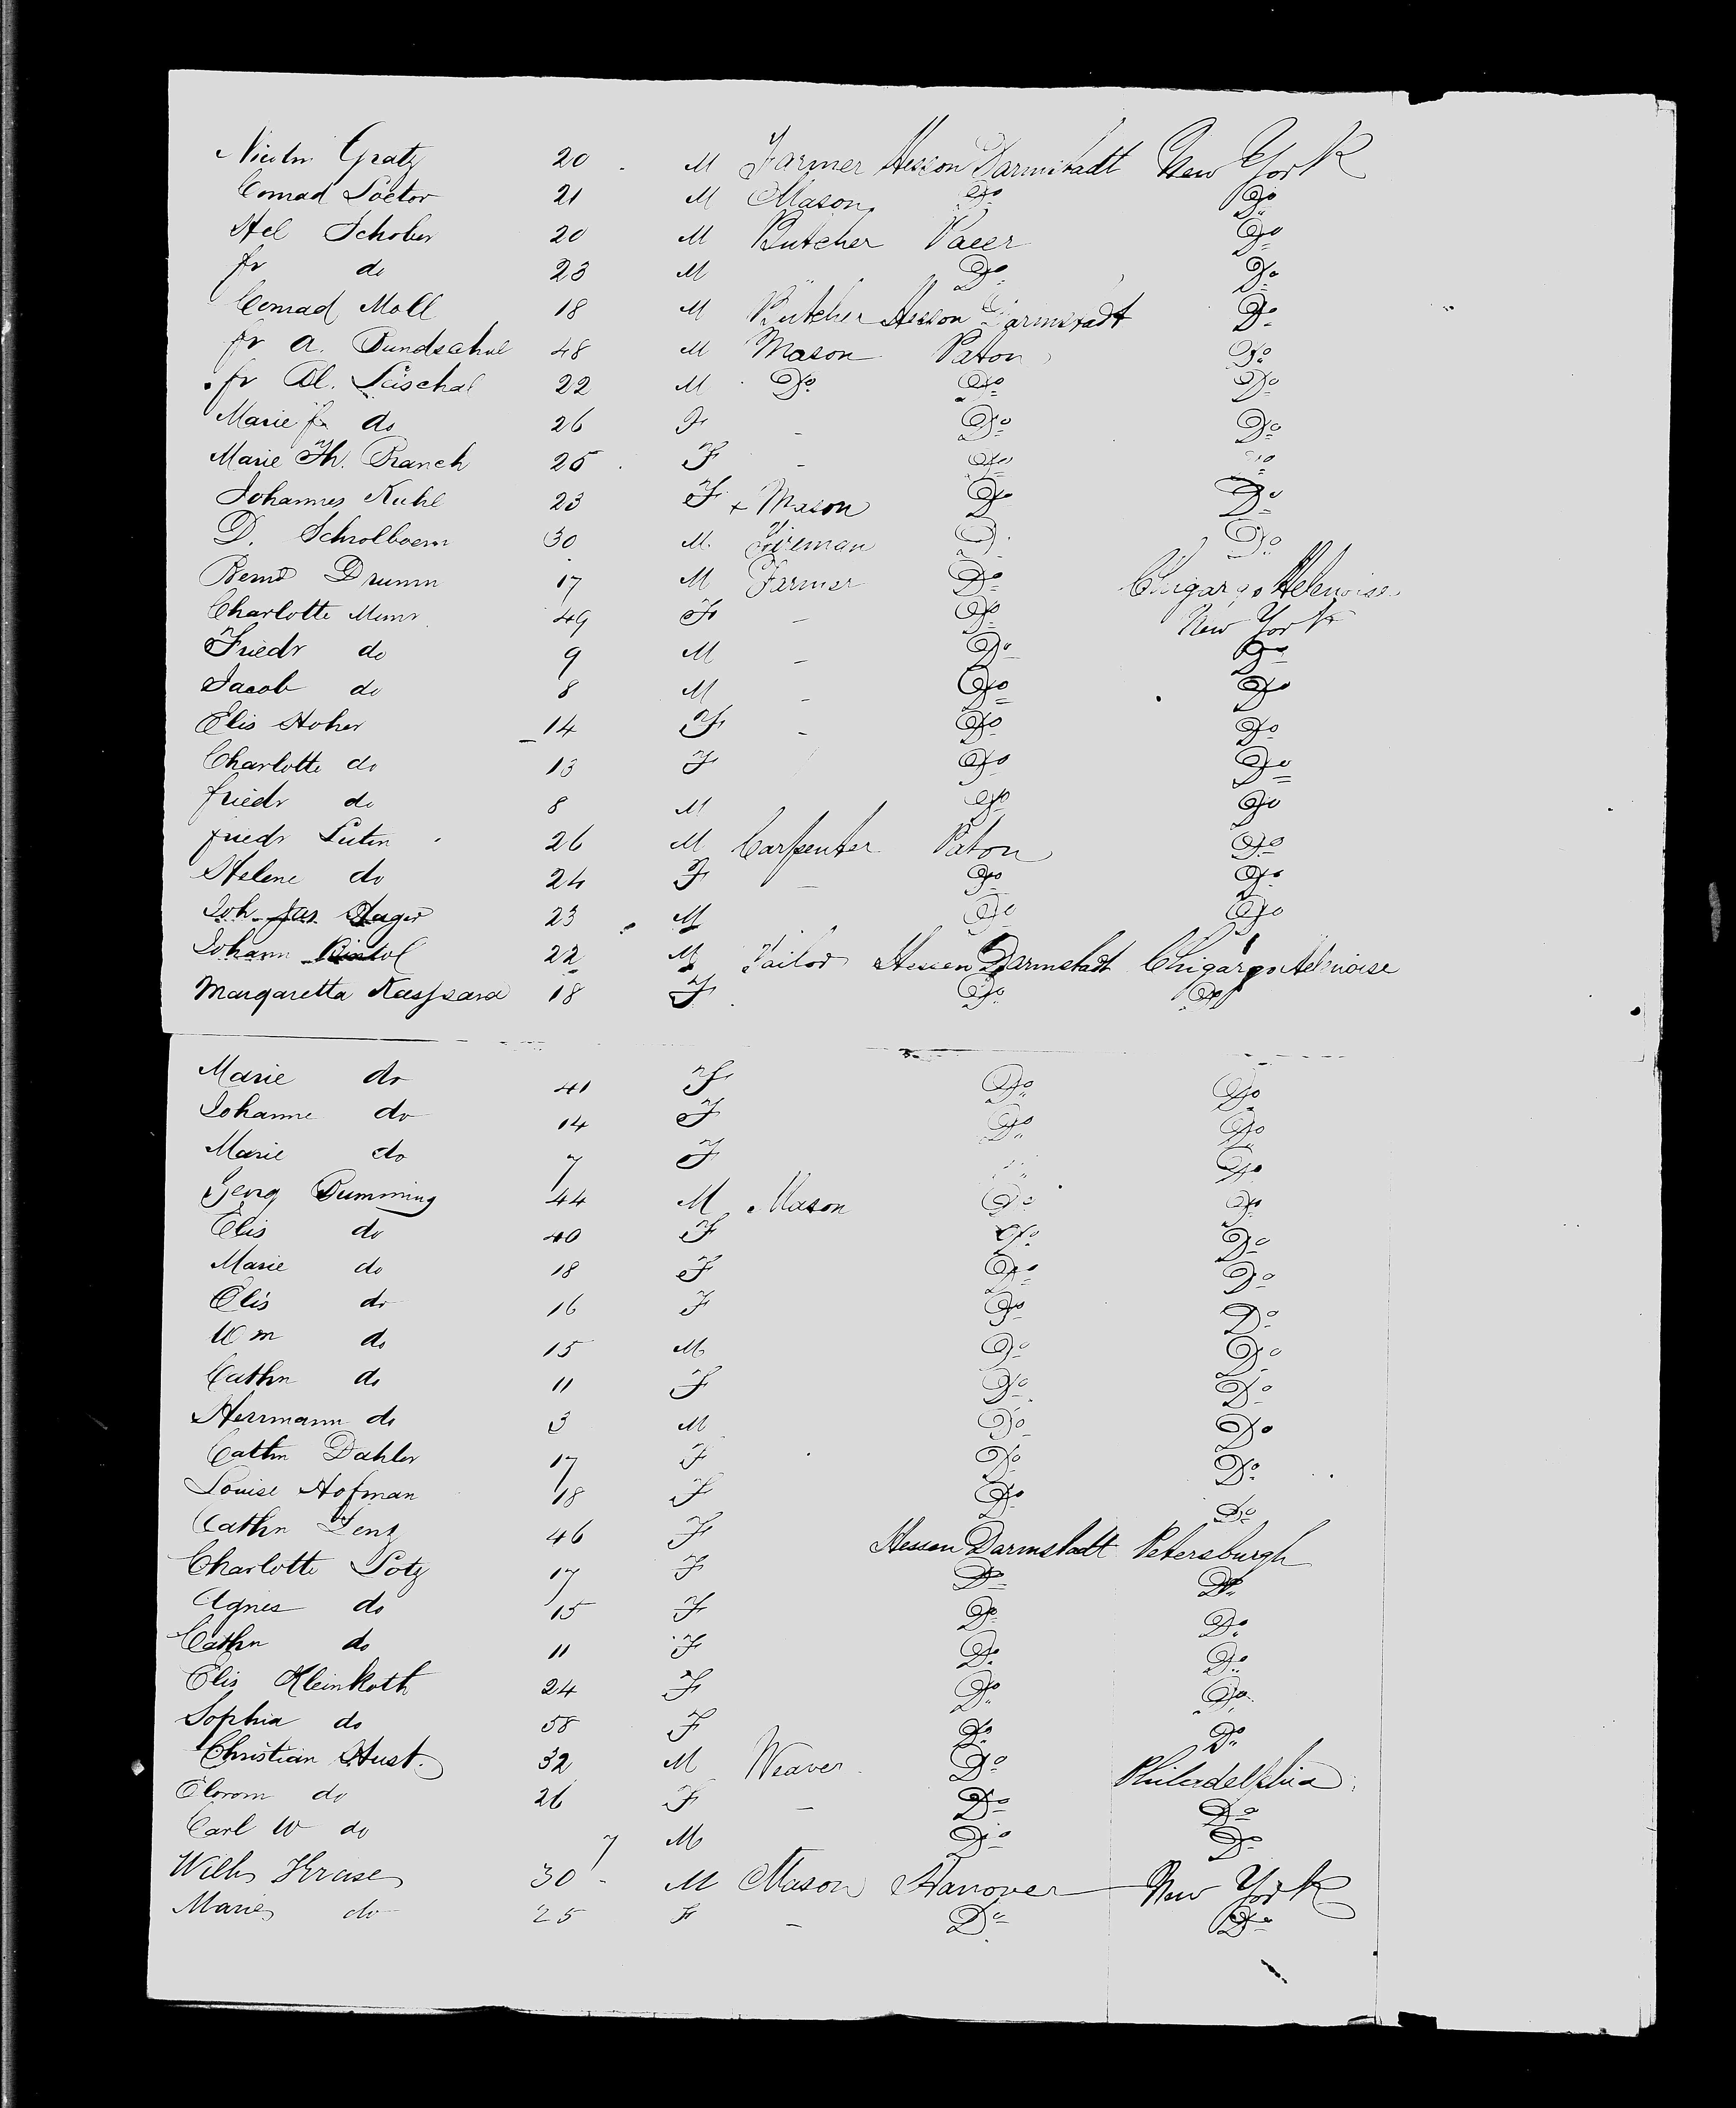 Nicoln Gratz 20 M Farmer Hesson Darmstadt New York
Conrad Loctor 21 M Mason Do Do
Hel Schober 20 M Butcher Do
fr do 23 M Do Do
Conrad Moll 18 M Butcher Hesson Darmstadt Do
fr A. Bundschul 48 M Mason Paton Do
fr Leischal 22 M Do Do Do
Marie fr do 26 F - Do Do
Marie Th. Ranch 25 F - Do Do
Johannes Kuhl 23 F + Mason Do Do
D. Schrolboem 30 M. Fireman D Do
Bernd Drumm 17 M Farmer Do Chigargo Helenoise
Charlotte 49 F - Do New York
Friedr do 9 M - Do Do
Jacob do 8 M - Do Do
Elis Hoher 14 F - Do Do
Charlotte do 13 F Do Do
friedr do 8 M Do Do
friedr Lutin 26 M Carpenter Paton Do
Helene do 24 F - Do Do
Joh. Jas 23 M Do Do
Johann 22 M Tailor Hessen Darmstadt Chigargo Helenoise
Margaretta 18 F Do Do
Marie do 41 F Do Do
Johanne do 14 F Do Do
Marie do 7 F Do
Georg Bumming 44 M Mason Do Do
Elis do 40 F Do Do
Marie do 18 F Do Do
Elis do 16 F Do Do
Wm do 15 M Do Do
Cathn do 11 F Do Do
Herrmann do 3 M Do Do
Cathn Dahler 17 F Do Do
Louise Hofman 18 F Do Do
Cathn Lenz 46 F Hessen Darmstadt Petersburgh
Charlotte Lotz 17 F Do Do
Agnes do 15 F Do Do
Cathn do 11 F Do Do
Elis Kleinkoth 24 F Do Do
Sophia do 58 F Do Do
Christian Hust. 32 M Weaver Do Philerdelphia
Elorom do 26 F - Do Do
Carl W do 7 M Do Do
Wilh Kruse 30 - M Mason Hanover New York
Marie do 25 F - Do Do